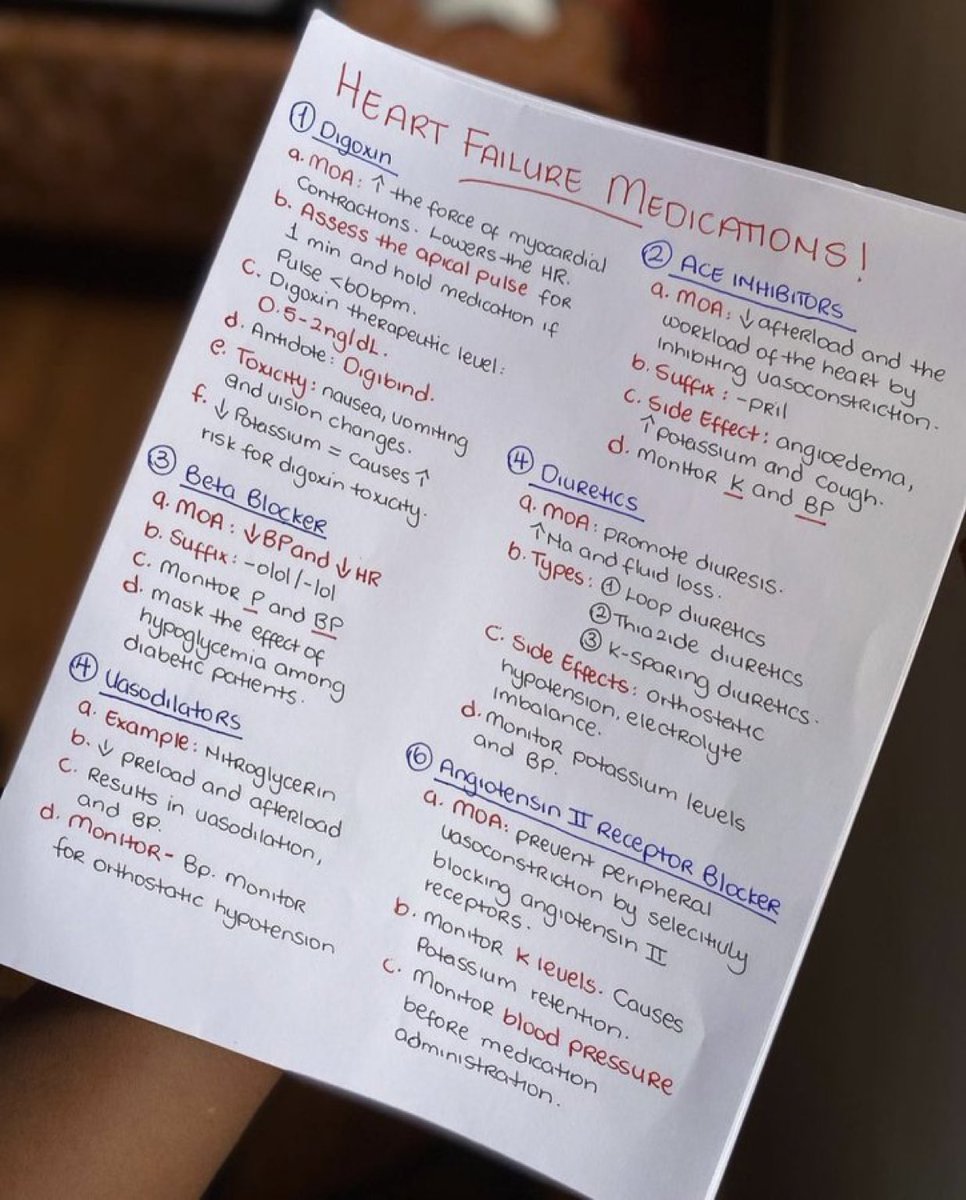 HEART FAILURE MEDICATIONS!
① Digoxin
a. MOA: ↑ the force of myocardial
contractions. Lowers the HR.
b. Assess the apical pulse for
1 min and hold medication if
Pulse <60bpm.
c. Digoxin therapeutic level:
0.5-2ng/dL.
d. Antidote: Digibind.
e. Toxicity: nausea, vomiting
and vision changes.
f. ↓ Potassium = causes ↑
risk for digoxin toxicity.
② ACE INHIBITORS
a. MOA: ↓ afterload and the
workload of the heart by
inhibiting vasoconstriction.
b. Suffix: -pril
c. Side Effect: angioedema,
↑ potassium and cough.
d. monitor K and BP
③ Beta Blocker
a. MOA: ↓BP and ↓ HR
b. Suffix: -olol/-lol
c. monitor P and BP
d. mask the effect of
hypoglycemia among
diabetic patients.
④ Diuretics
a. MOA: promote diuresis.
↑Na and fluid loss.
b. Types: ① Loop diuretics
② Thiazide diuretics
③ K-sparing diuretics.
c. Side Effects: orthostatic
hypotension, electrolyte
imbalance.
d. monitor potassium levels
and BP.
④ Vasodilators
a. Example: Nitroglycerin
b. ↓ preload and afterload
c. Results in vasodilation,
and BP.
d. monitor- Bp. monitor
for orthostatic hypotension
⑥ Angiotensin II Receptor Blocker
a. MOA: prevent peripheral
vasoconstriction by selecitivly
blocking angiotensin II
receptors.
b. monitor k levels. Causes
Potassium retention.
c. monitor blood pressure
before medication
administration.